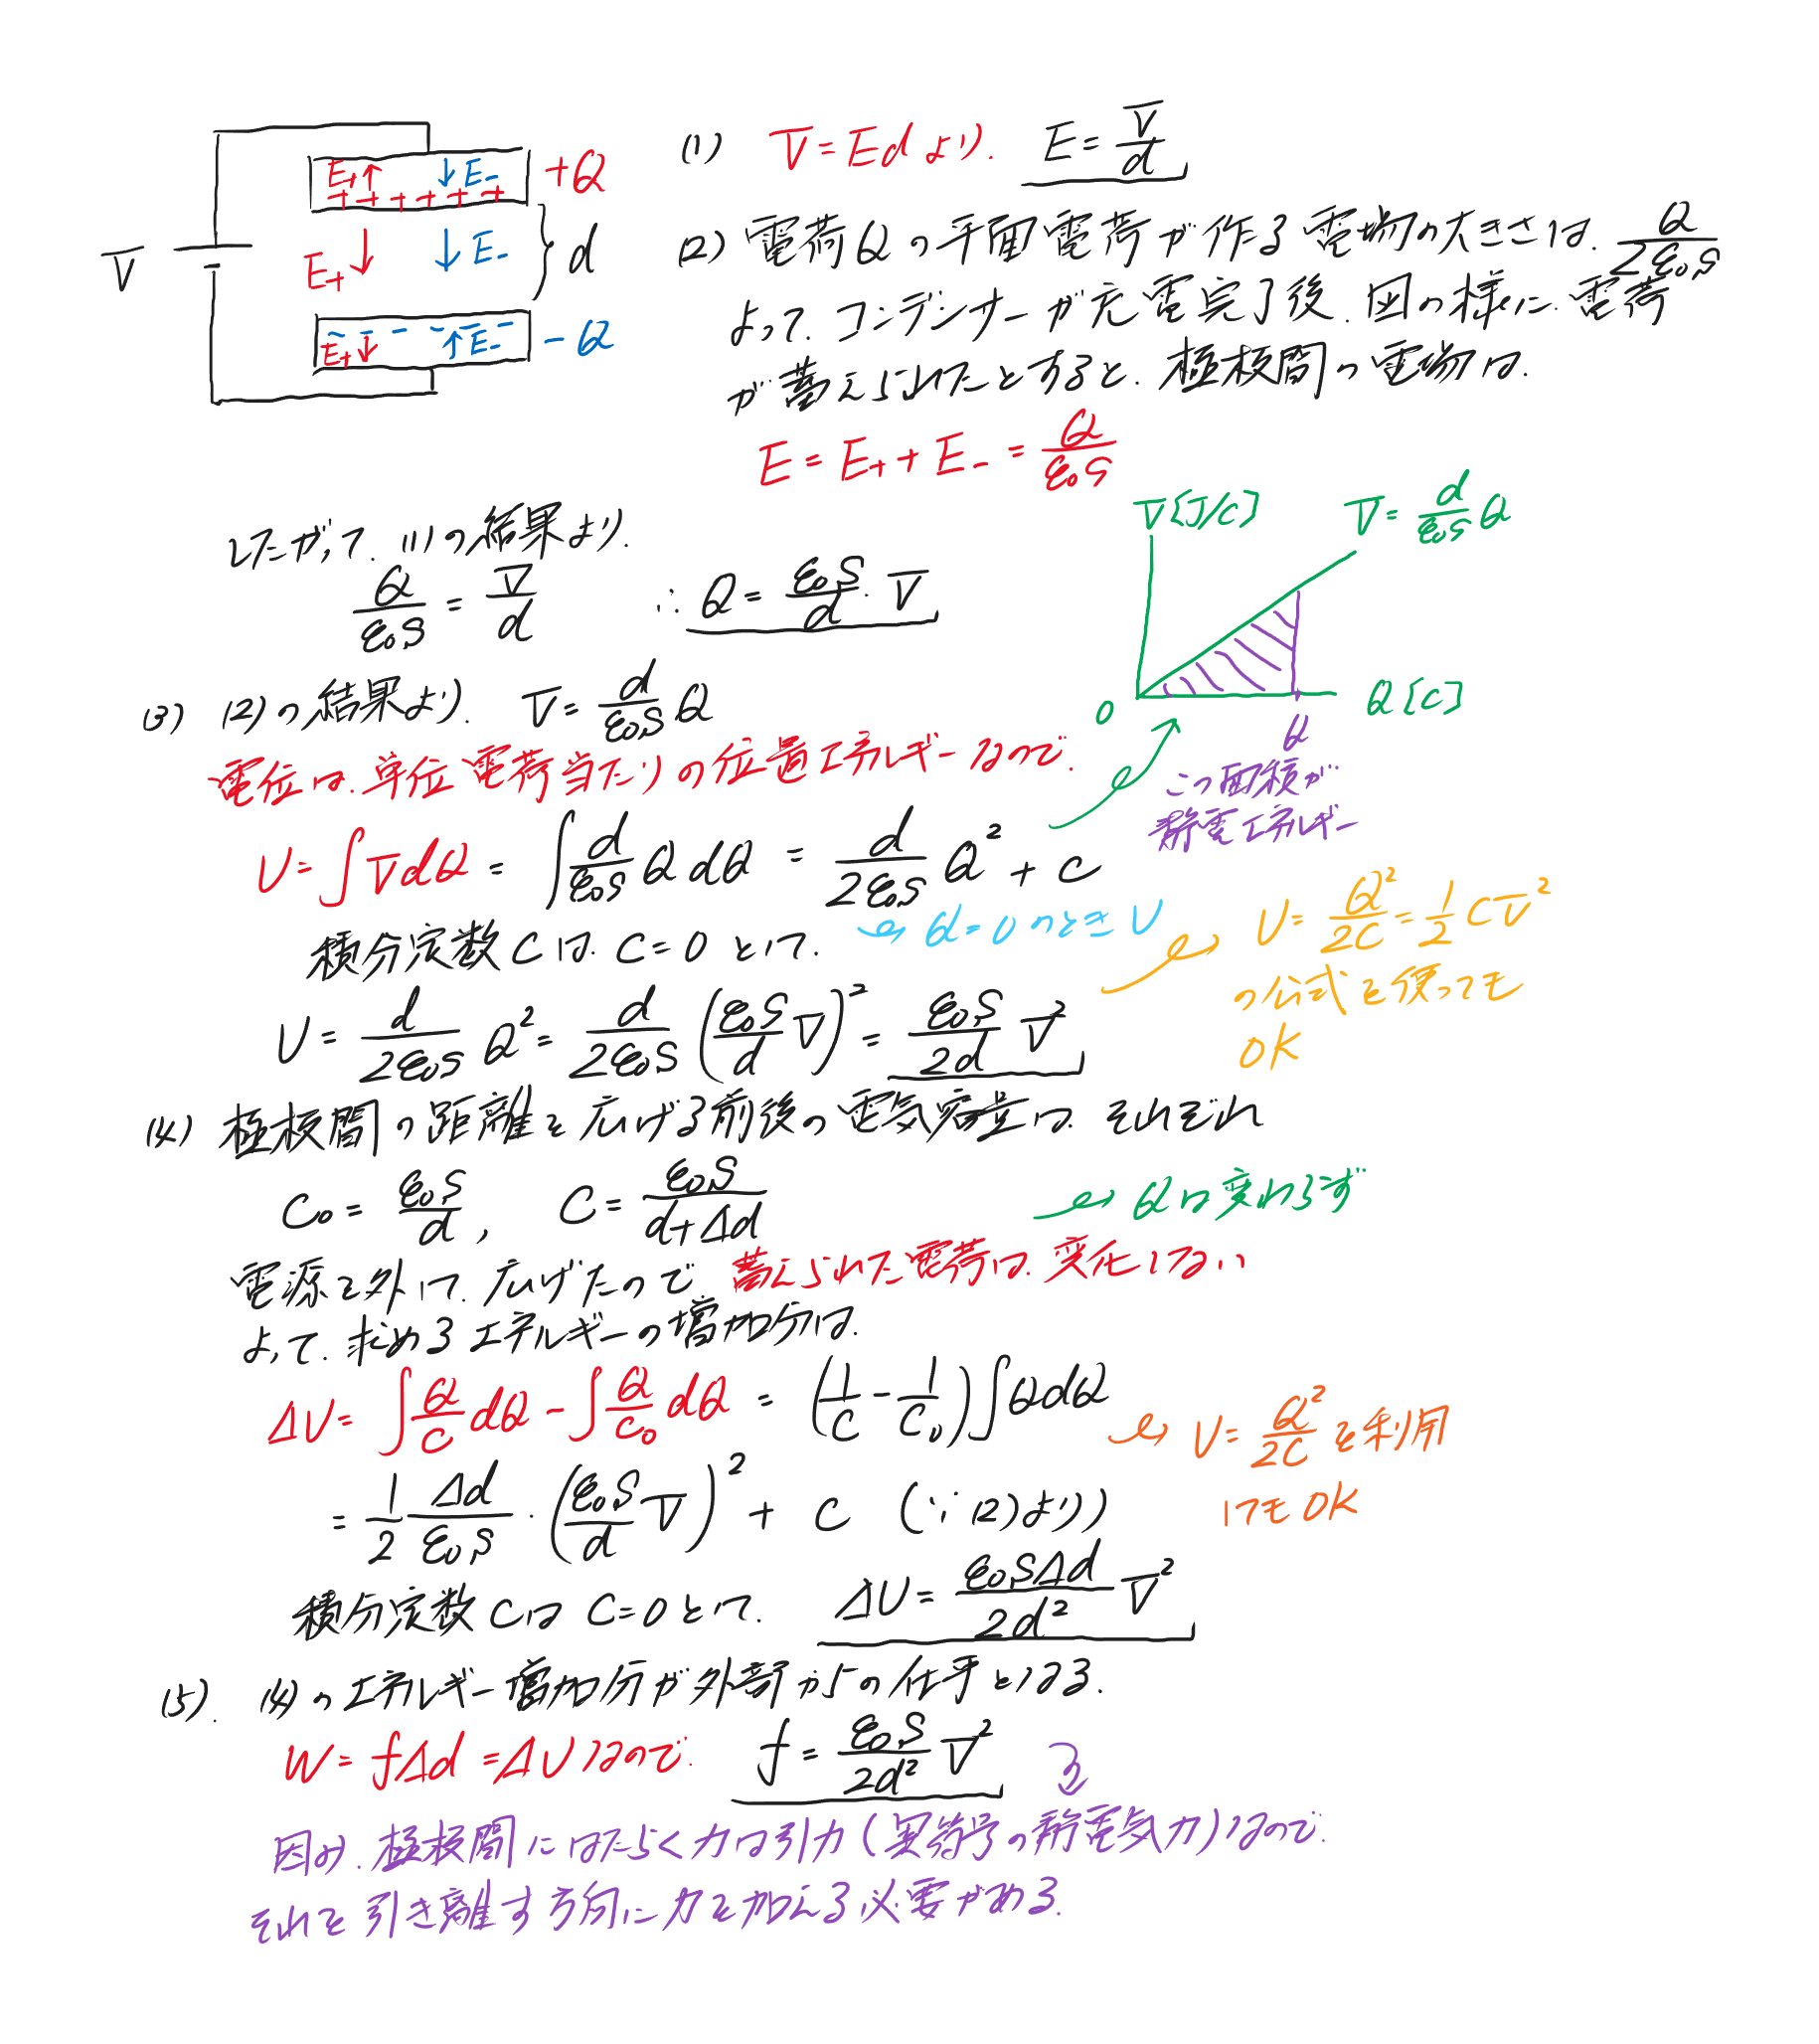 V
E+↑ ↓E-
+ + + + + +
+Q
E+↓ ↓E-
d
- - - - - -
E+↓ ↑E-
-Q
(1) V=Edより. E=V/d
(2) 電荷Qの平面電荷が作る電場の大きさは. Q/2ε₀S
よって. コンデンサーが充電完了後. 図の様に. 電荷
が蓄えられたとすると. 極板間の電場は.
E = E+ + E- = Q/ε₀S
したがって. (1)の結果より.
Q/ε₀S = V/d ∴ Q = ε₀S/d・V
V[J/C]
V = d/ε₀S Q
0
Q[C]
Q
この面積が
静電エネルギー
(3) (2)の結果より. V = d/ε₀S Q
電位は. 単位電荷当たりの位置エネルギーなので.
U = ∫VdQ = ∫d/ε₀S Q dQ = d/2ε₀S Q² + C
積分定数Cは. C=0として.
Q=0のときU
U = Q²/2C = 1/2 CV²
の公式を使っても
OK
U = d/2ε₀S Q² = d/2ε₀S (ε₀S/d V)² = ε₀S/2d V²
(4) 極板間の距離を広げる前後の電気容量は. それぞれ
C₀ = ε₀S/d, C = ε₀S/d+Δd
Qは変わらず
電源を外して. 広げたので. 蓄えられた電荷は. 変化しない
よって. 求めるエネルギーの増加分は.
ΔU = ∫Q/C dQ - ∫Q/C₀ dQ = (1/C - 1/C₀)∫QdQ
U = Q²/2C を利用
してもOK
= 1/2 Δd/ε₀S・(ε₀S/d V)² + C (∵(2)より)
積分定数Cは C=0として. ΔU = ε₀SΔd/2d² V²
(5). (4)のエネルギー増加分が外部からの仕事となる.
W = fΔd = ΔUなので. f = ε₀S/2d² V²
因み. 極板間にはたらく力は引力(異符号の静電気力)なので.
それを引き離す方向に力を加える必要がある.